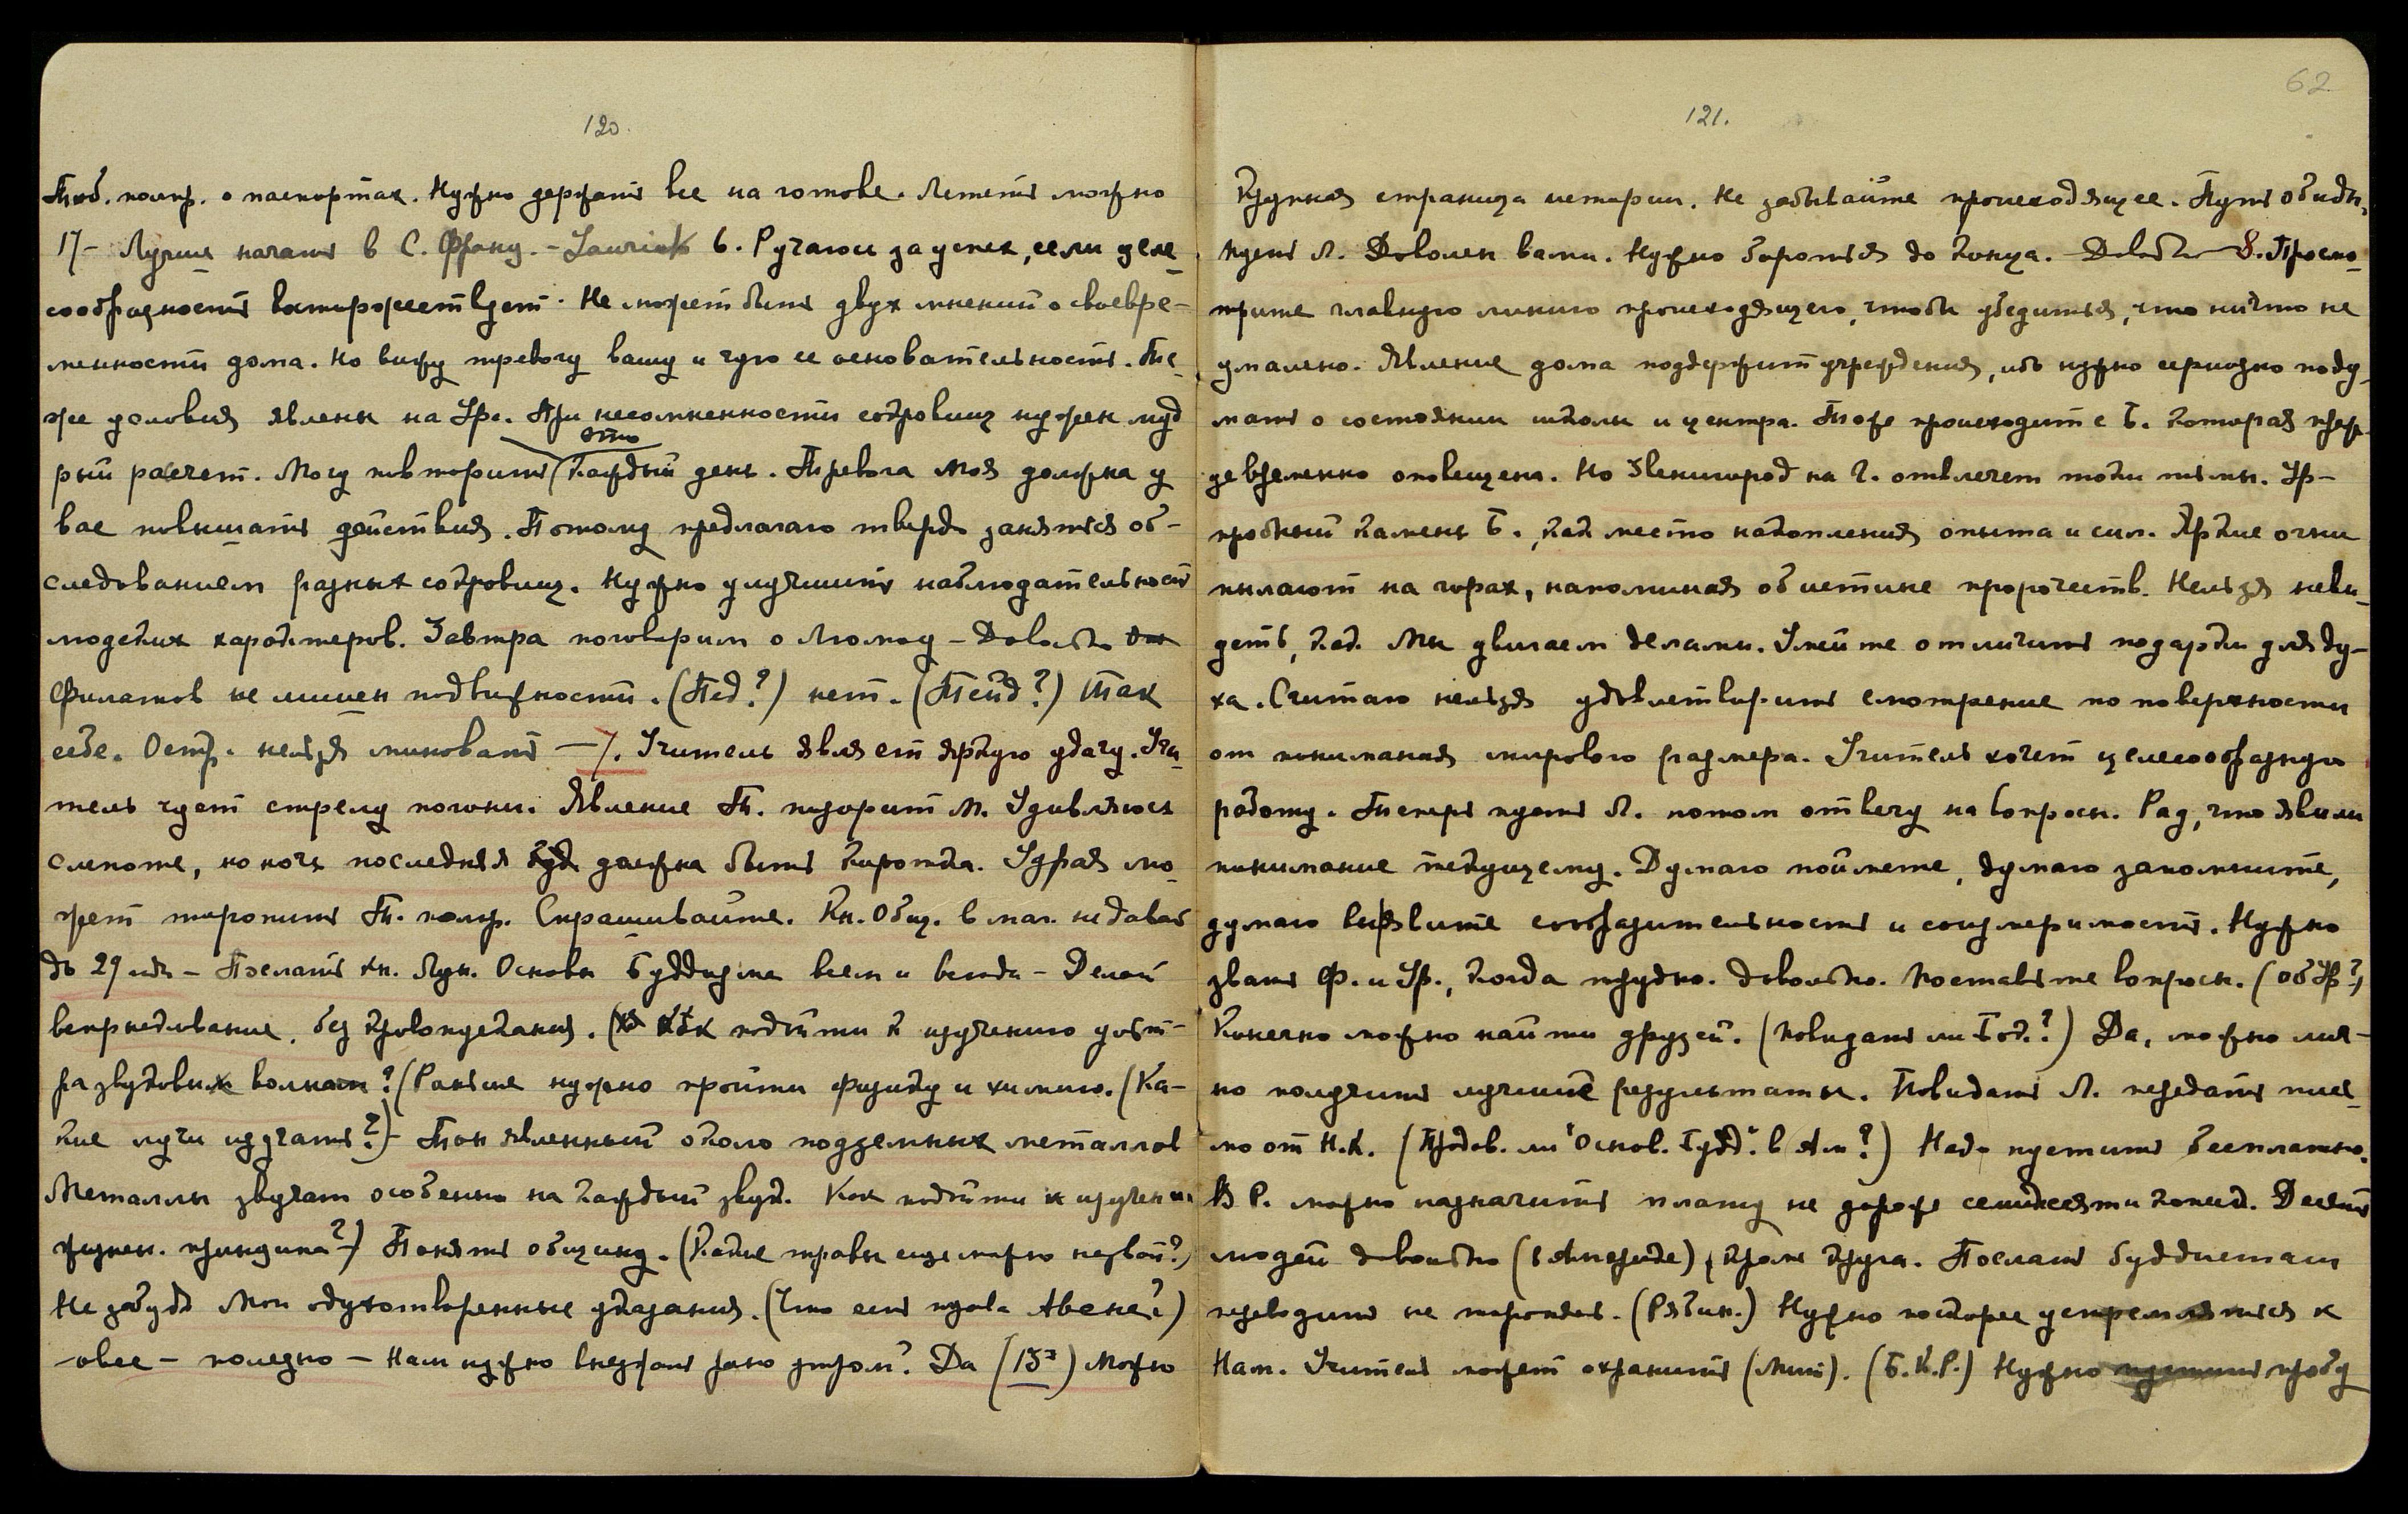 62
120.
Тоб. помр. о паспортах. Нужно держать все на готове. Лететь можно
17 – Лучше начать в С. Фран. – 6. Ручаюсь за успех, если целе-
сообразность восторжествует. Не может быть двух мнений о своевре-
менности дома. Но вижу тревогу вашу и чую ее основательность. Те
же условия явлены на Ур. При несомненности сокровищ нужен муд
рый расчет. Могу повторить это каждый день. Тревога Моя должна у
вас повышать действия. Потому предлагаю твердо заняться об-
следованием разных сокровищ. Нужно улучшить наблюдательность
людских характеров. Завтра поговорим о Люмоу – Довольно
Филатов не лишен подвижности. (Пед?) нет. (Тейд?) Так
себе. Остр. нельзя миновать – 7. Учитель являет яркую удачу. Учи-
тель чует стрелу погони. Явление Т. поорит М. Удивляюсь
слепоте, но ночь последняя должна быть коротка. Удрая мо-
жет торопить Т. помр. Спрашивайте. Кн. Общ. в маг. не давать
до 29 – Послать кн. Лун. Основы Буддизма всем и всюду – Делай
вспрыскивание, без кровопускания. (Как подойти к изучению ульт-
развуковых волн?) (Раньше нужно пройти физику и химию. (Ка-
кие лучи изучать?) – Тон явленный около подземных металлов
Металлы звучат особенно на каждый звук. Как подойти к изучению
жизнен. принципа?) Понять общину. (Какие травы еще можно назвать?)
Не забудь Мои одухотворенные указания. (Что есть трава Авена?)
– овес – полезно – Нам нужно выезжать рано утром? Да (13²) Можно
121.
Крупная страница истории. Не забывайте происходящее. Путь обиды,
пусть Л. Доволен вами. Нужно бороться до конца. – Довольно – 8. Просмо-
трите главную линию происходящего, чтобы убедиться, что ничто не
умалено. Явление дома поддержит учреждения, ибо нужно серьезно поду-
мать о состоянии школы и центра. Тоже происходит с Б. которая преж-
девременно оповещена. Но Звенигород на г. отвлечет токи тьмы. Ур –
пробный камень Б., как место накопления опыта и сил. Яркие огни
пылают на горах, напоминая об истине пророчеств. Нельзя неви-
деть, как Мы двигаем делами. Умейте отличить подарки для ду-
ха. Считаю нельзя удовлетворить смотрение по поверхности
от понимания мирового размера. Учитель хочет целесообразную
работу. Теперь пусть Л. потом отвечу на вопросы. Рад, что явили
понимание текущему. Думаю поймете, думаю запомните,
думаю выявите сообразительность и соизмеримость. Нужно
звать Ф. и Ур., когда трудно. Довольно. Поставьте вопросы. (Об Ур?)
Конечно можно найти друзей. (Повидать ли Бок.?) Да, можно лич-
но получить лучшие результаты. Повидать Л. передать пись-
мо от Н.К. (Продов. ли "Основ. Будд." в Ам?) Надо пустить бесплатно.
В Р. можно назначить плату не дороже семидесяти копеек. Десять
людей довольно (в Америке), кроме круга. Послать буддистам
переводить не торопясь. (Рябин.) Нужно поскорее устремляться к
Нам. Учитель может охранить (Мит). (Б.К.Р.) Нужно пробу